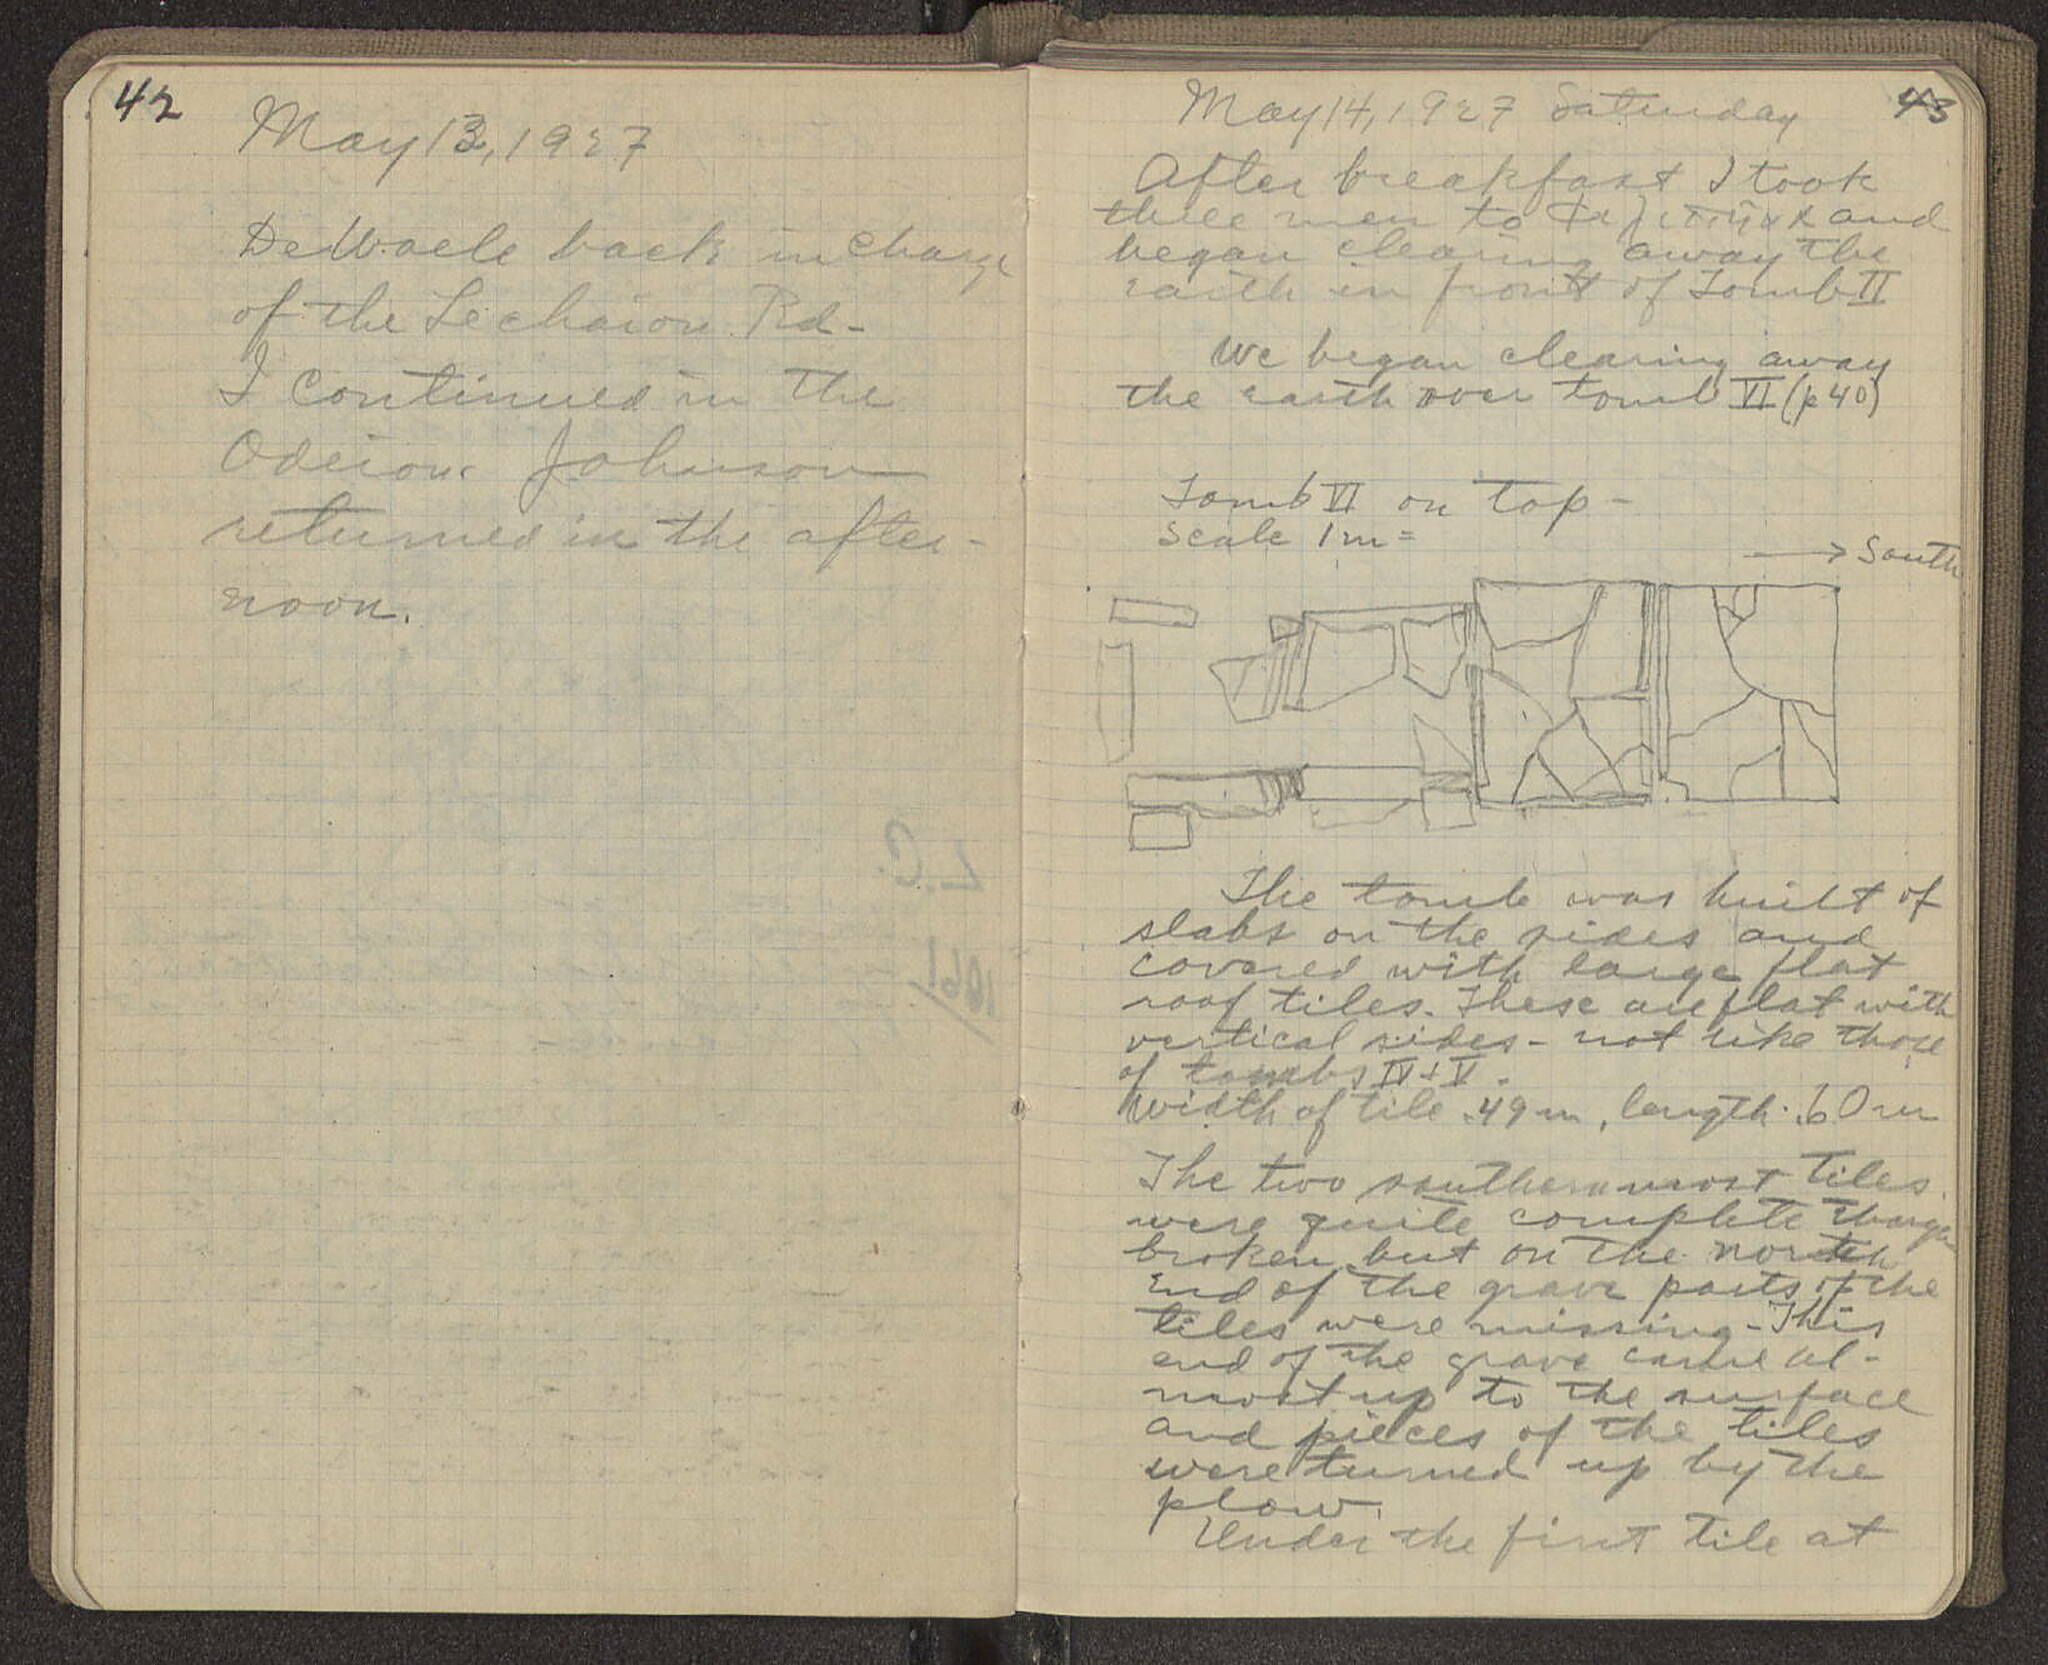 42
May 13, 1927
DeWaele back in charge
of the Lechaion Rd-
I continued in the
Odeion. Johnson
returned in the after-
noon.
43
May 14, 1927 Saturday
After breakfast I took
three men to and
began clearing away the
earth in front of Tomb II
We began clearing away
the earth over tomb VI (p 40)
Tomb VI on top -
Scale 1 m =
South
The tomb was built of
slabs on the sides and
covered with large flat
roof tiles. These are flat with
vertical sides - not like those
of tombs IV + V.
Width of tile .49 m, length .60 m
The two southernmost tiles
were quite complete though
broken but on the north
end of the grave parts of the
tiles were missing - This
end of the grave came al-
most up to the surface
and pieces of the tiles
were turned up by the
plow.
Under the first tile at